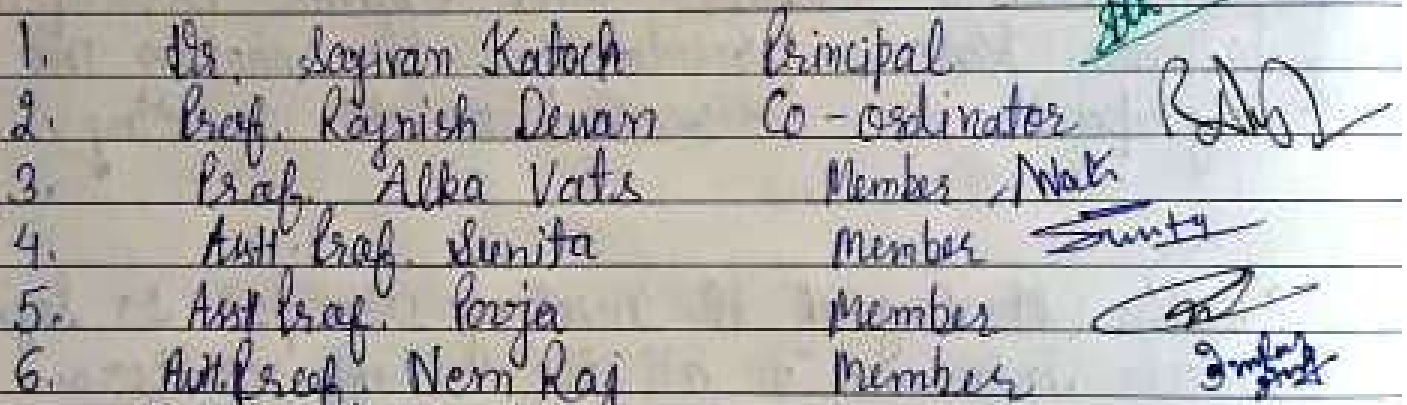 1. Dr. Sagivan Katoch Principal
2. Prof. Rajnish Dewan Co-ordinator
3. Prof. Alka Vats Member
4. Astt Prof. Sunita Member Sunita
5. Asst Prof. Pooja Member
6. Astt. Prof. Nem Raj Member